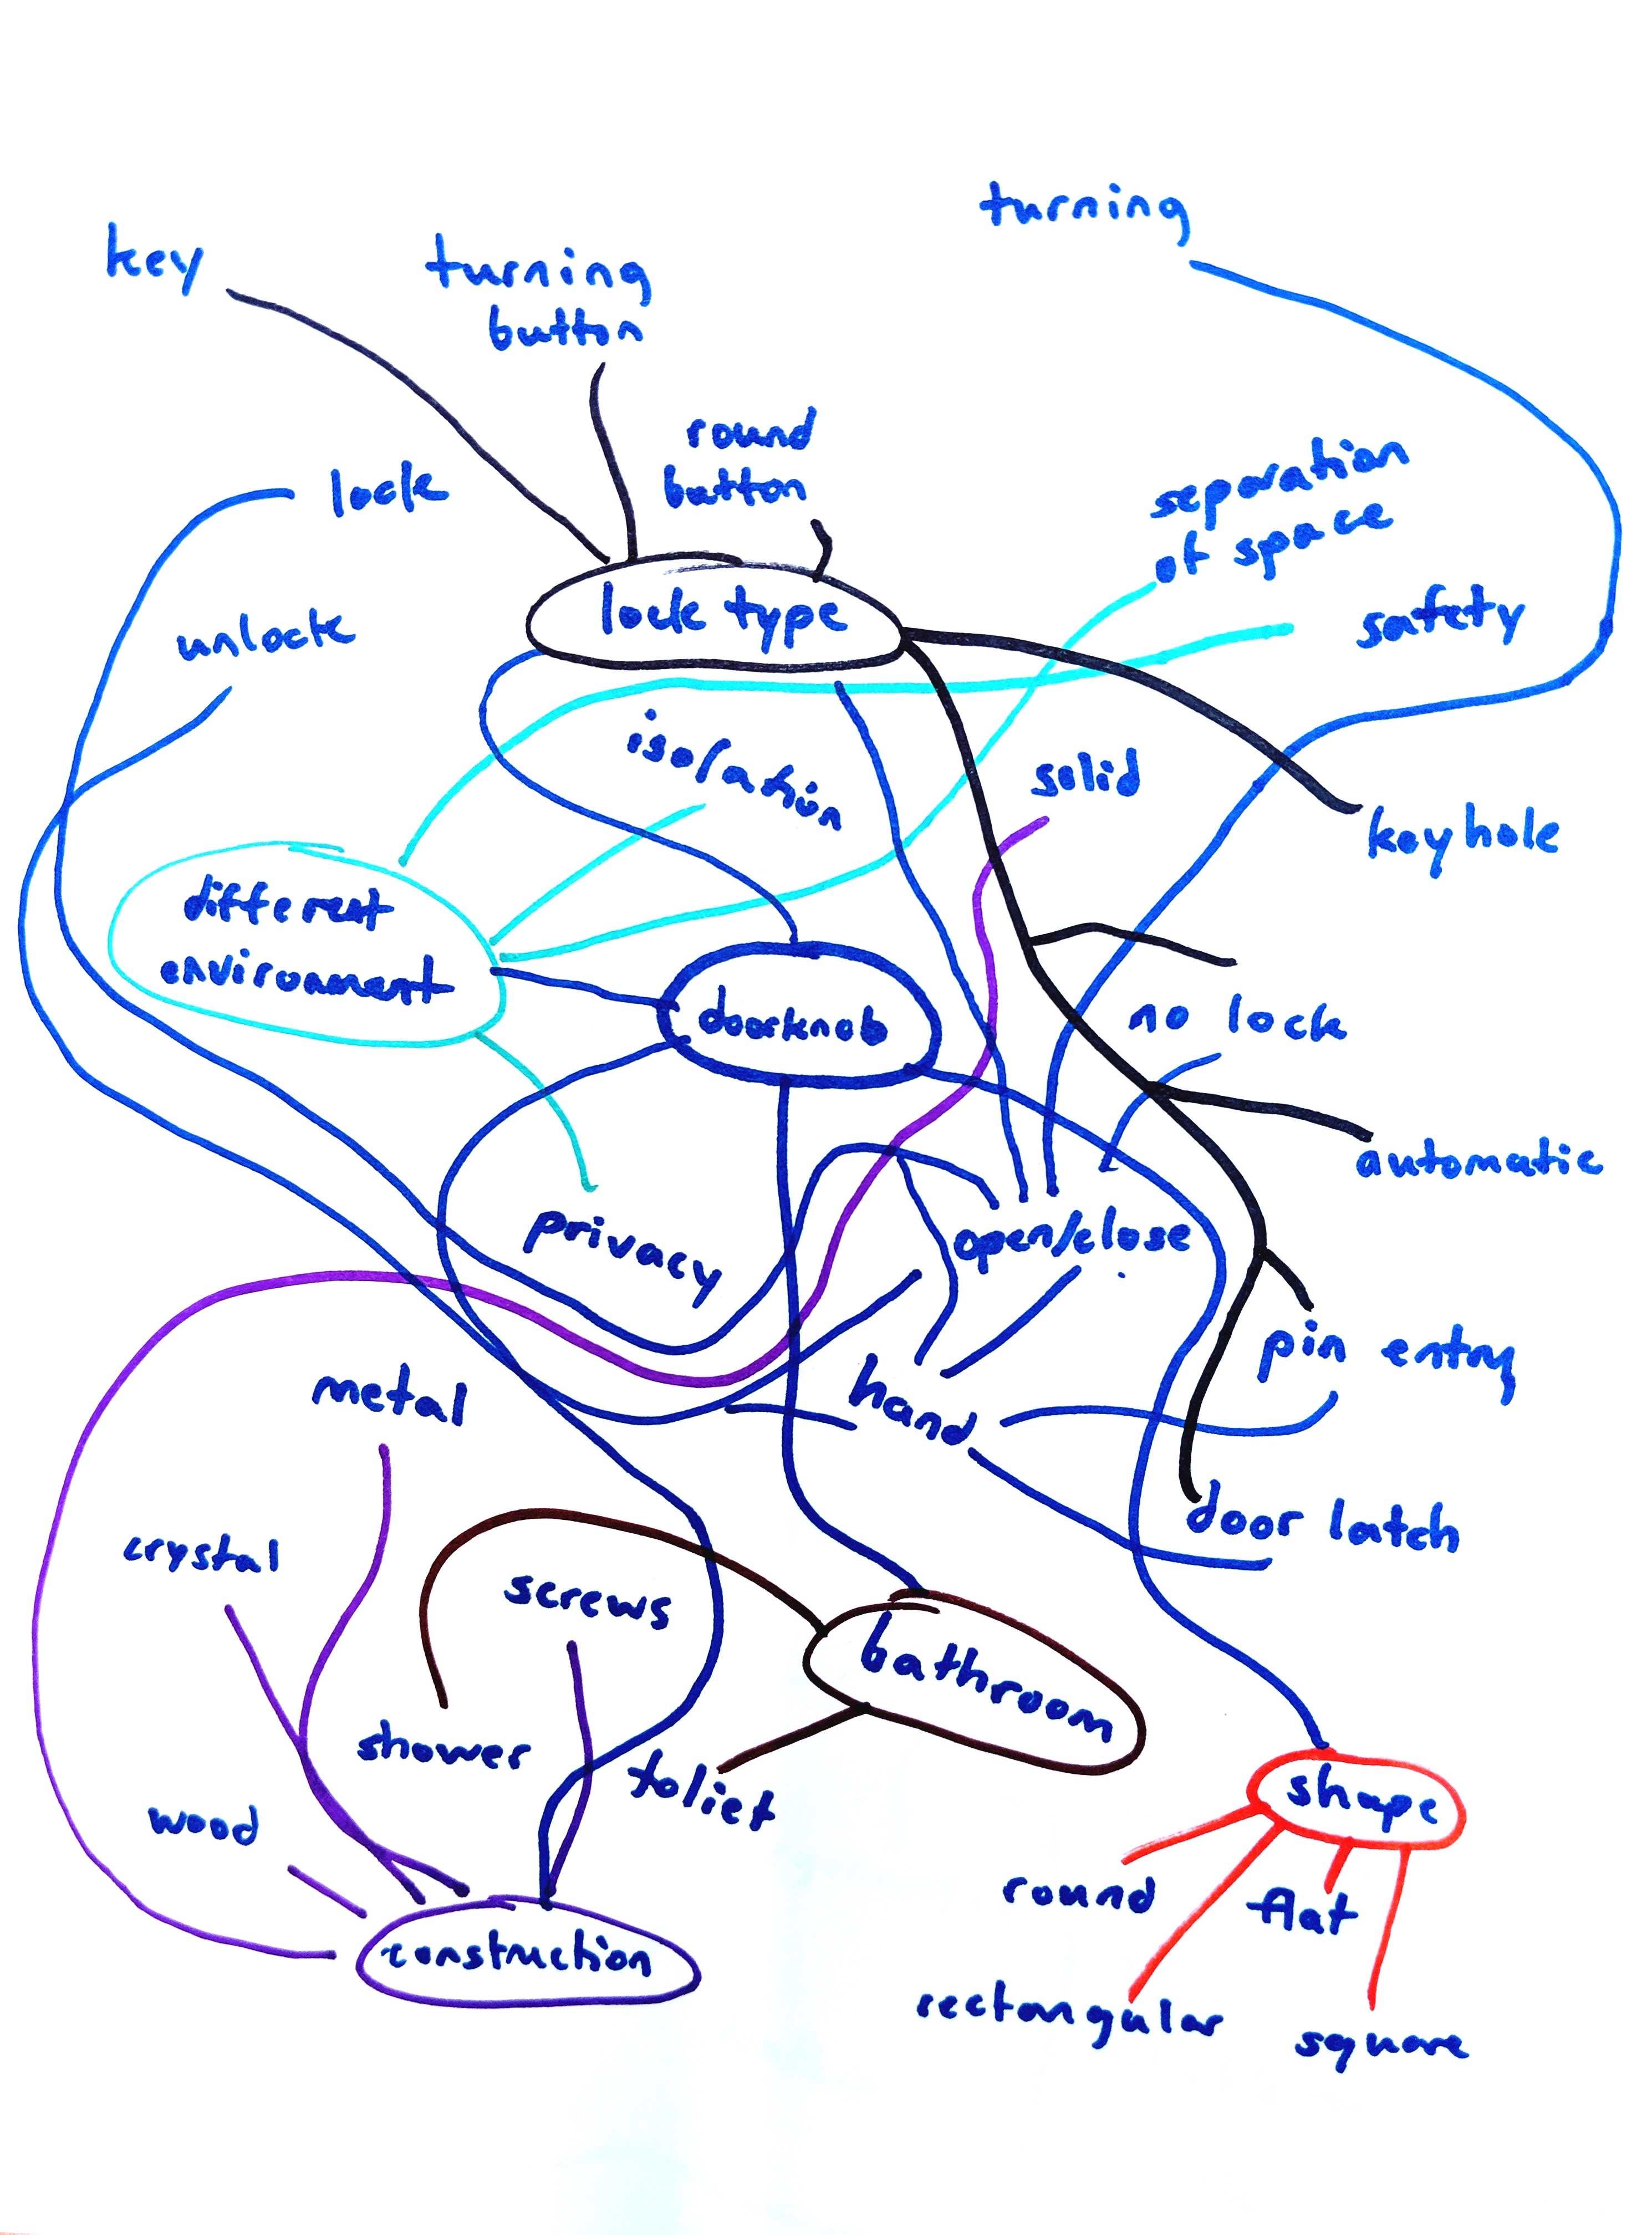 turning
key
turning
button
round
button
lock
separation
of space
lock type
safety
unlock
isolation
solid
keyhole
different
environment
doorknob
no lock
automatic
privacy
open/close
pin entry
hand
metal
door latch
crystal
screws
bathroom
shower
toliet
shape
wood
round
flat
construction
rectangular
square